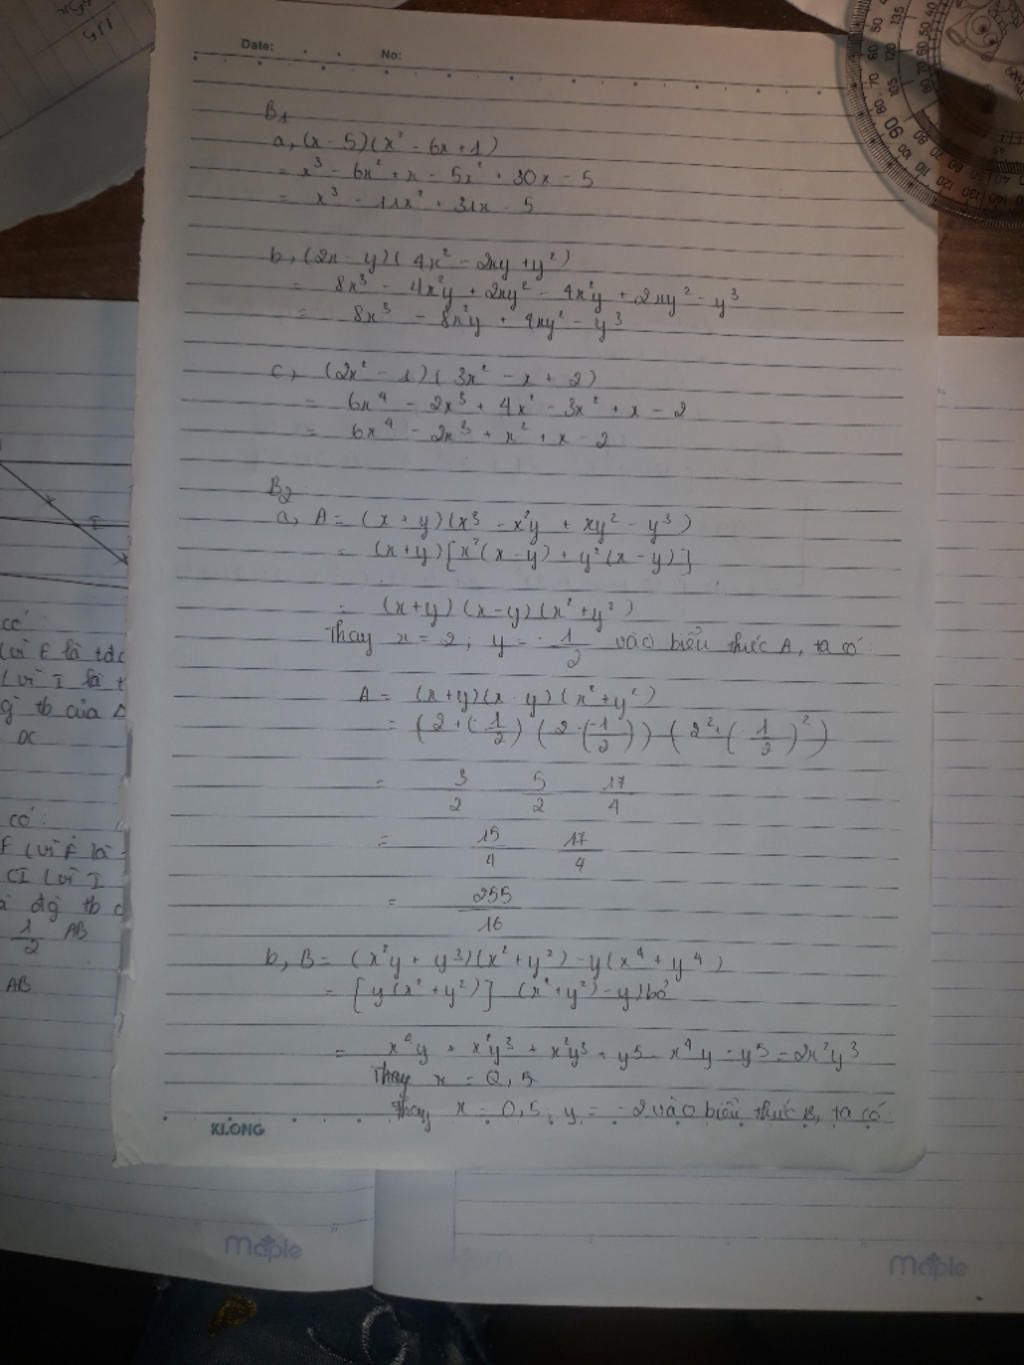 Date:
No:
B1
a, (x - 5)(x² - 6x + 1)
= x³ - 6x² + x - 5x² + 30x - 5
= x³ - 11x² + 31x - 5
b, (2x - y)(4x² - 2xy + y²)
= 8x³ - 4x²y + 2xy² - 4x²y + 2xy² - y³
= 8x³ - 8x²y + 4xy² - y³
c, (2x² - 1)(3x² - x + 2)
= 6x⁴ - 2x³ + 4x² - 3x² + x - 2
= 6x⁴ - 2x³ + x² + x - 2
B2
a, A = (x + y)(x³ - x²y + xy² - y³)
= (x+y)[x²(x - y) + y²(x - y)]
= (x+y)(x-y)(x²+y²)
Thay x = 2; y = -1/2 vào biểu thức A, ta có:
A = (x+y)(x-y)(x²+y²)
= (2+(-1/2)) (2-(-1/2)) (2²+(-1/2)²)
= 3/2 . 5/2 . 17/4
= 15/4 . 17/4
= 255/16
b, B = (x²y + y³)(x² + y²) - y(x⁴ + y⁴)
= [y(x² + y²)] (x²+y²) - y) bỏ
= x⁴y + x²y³ + x²y³ + y⁵ - x⁴y - y⁵ = 2x²y³
Thay x = 0,5
Thay x = 0,5; y = -2 vào biểu thức B, ta có:
KLONG
có:
(vì E là
(vì I là t
tb của Δ
DC
có:
F (vì F là
CI (vì I
đg tb c
1/2 AB
AB
Maple
Maple